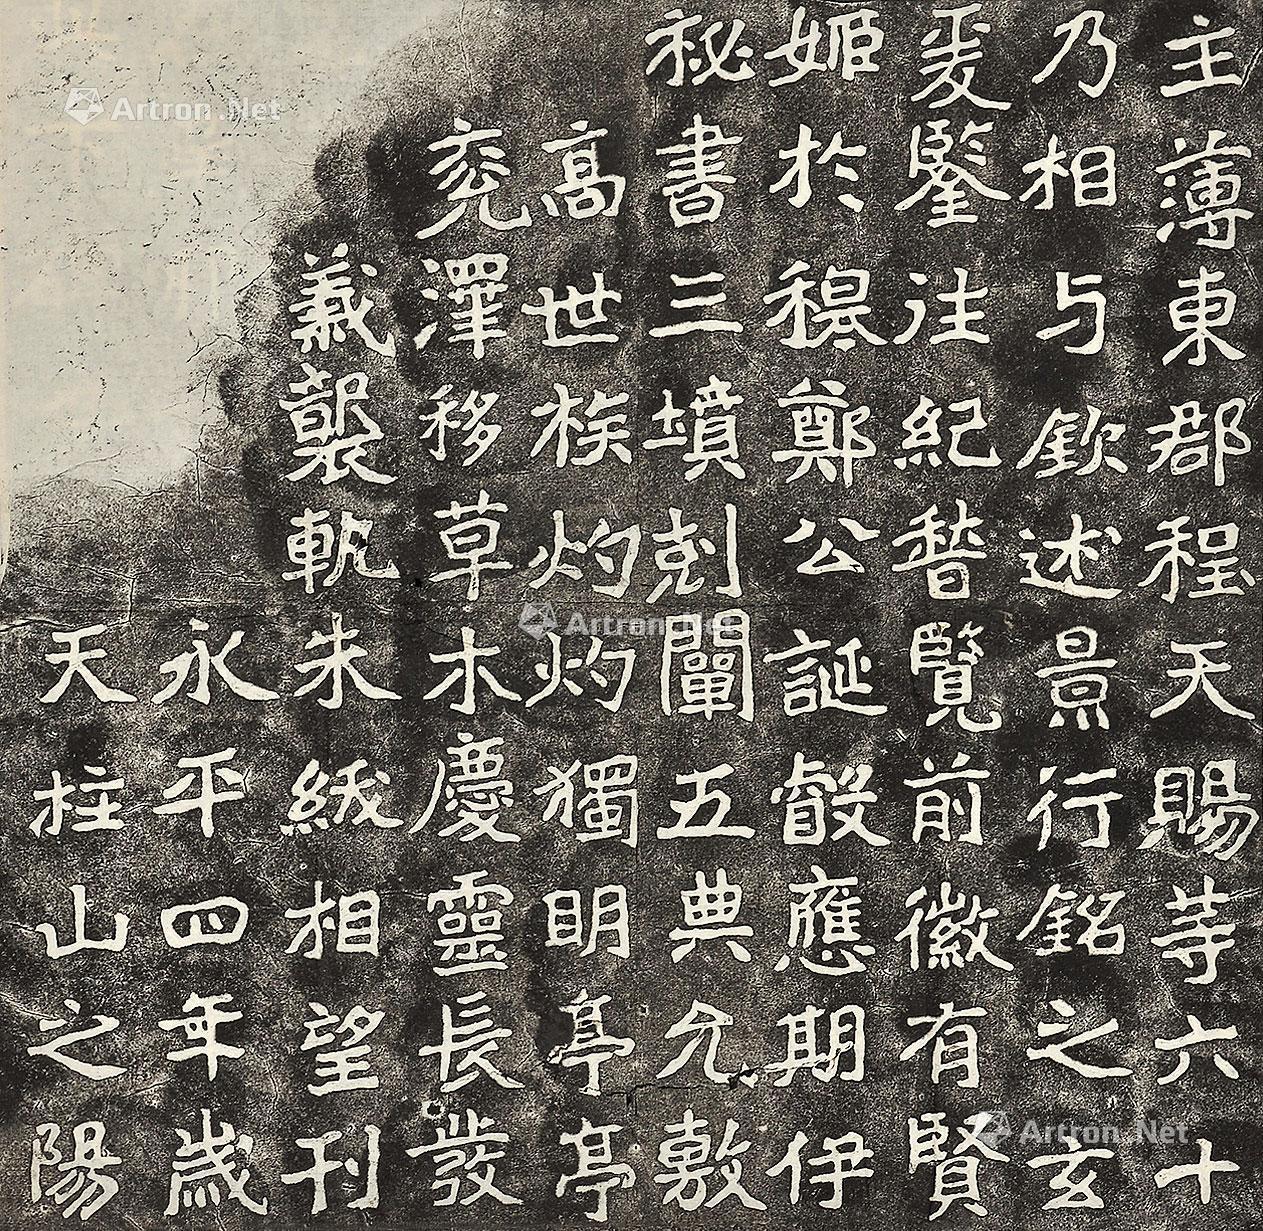 主薄東郡程天賜等六十
乃相与欽述景行銘之玄
爰鑒往紀稽覽前徽有賢
姬於穆鄭公誕叡應期伊
祕書三墳剋闡五典允敷
高世族灼灼獨明亭亭
兖澤移草木慶靈長發
義襲軌朱紱相望刊
永平四年歲
天柱山之陽
Artron.Net
Artron.Net
Artron.Net